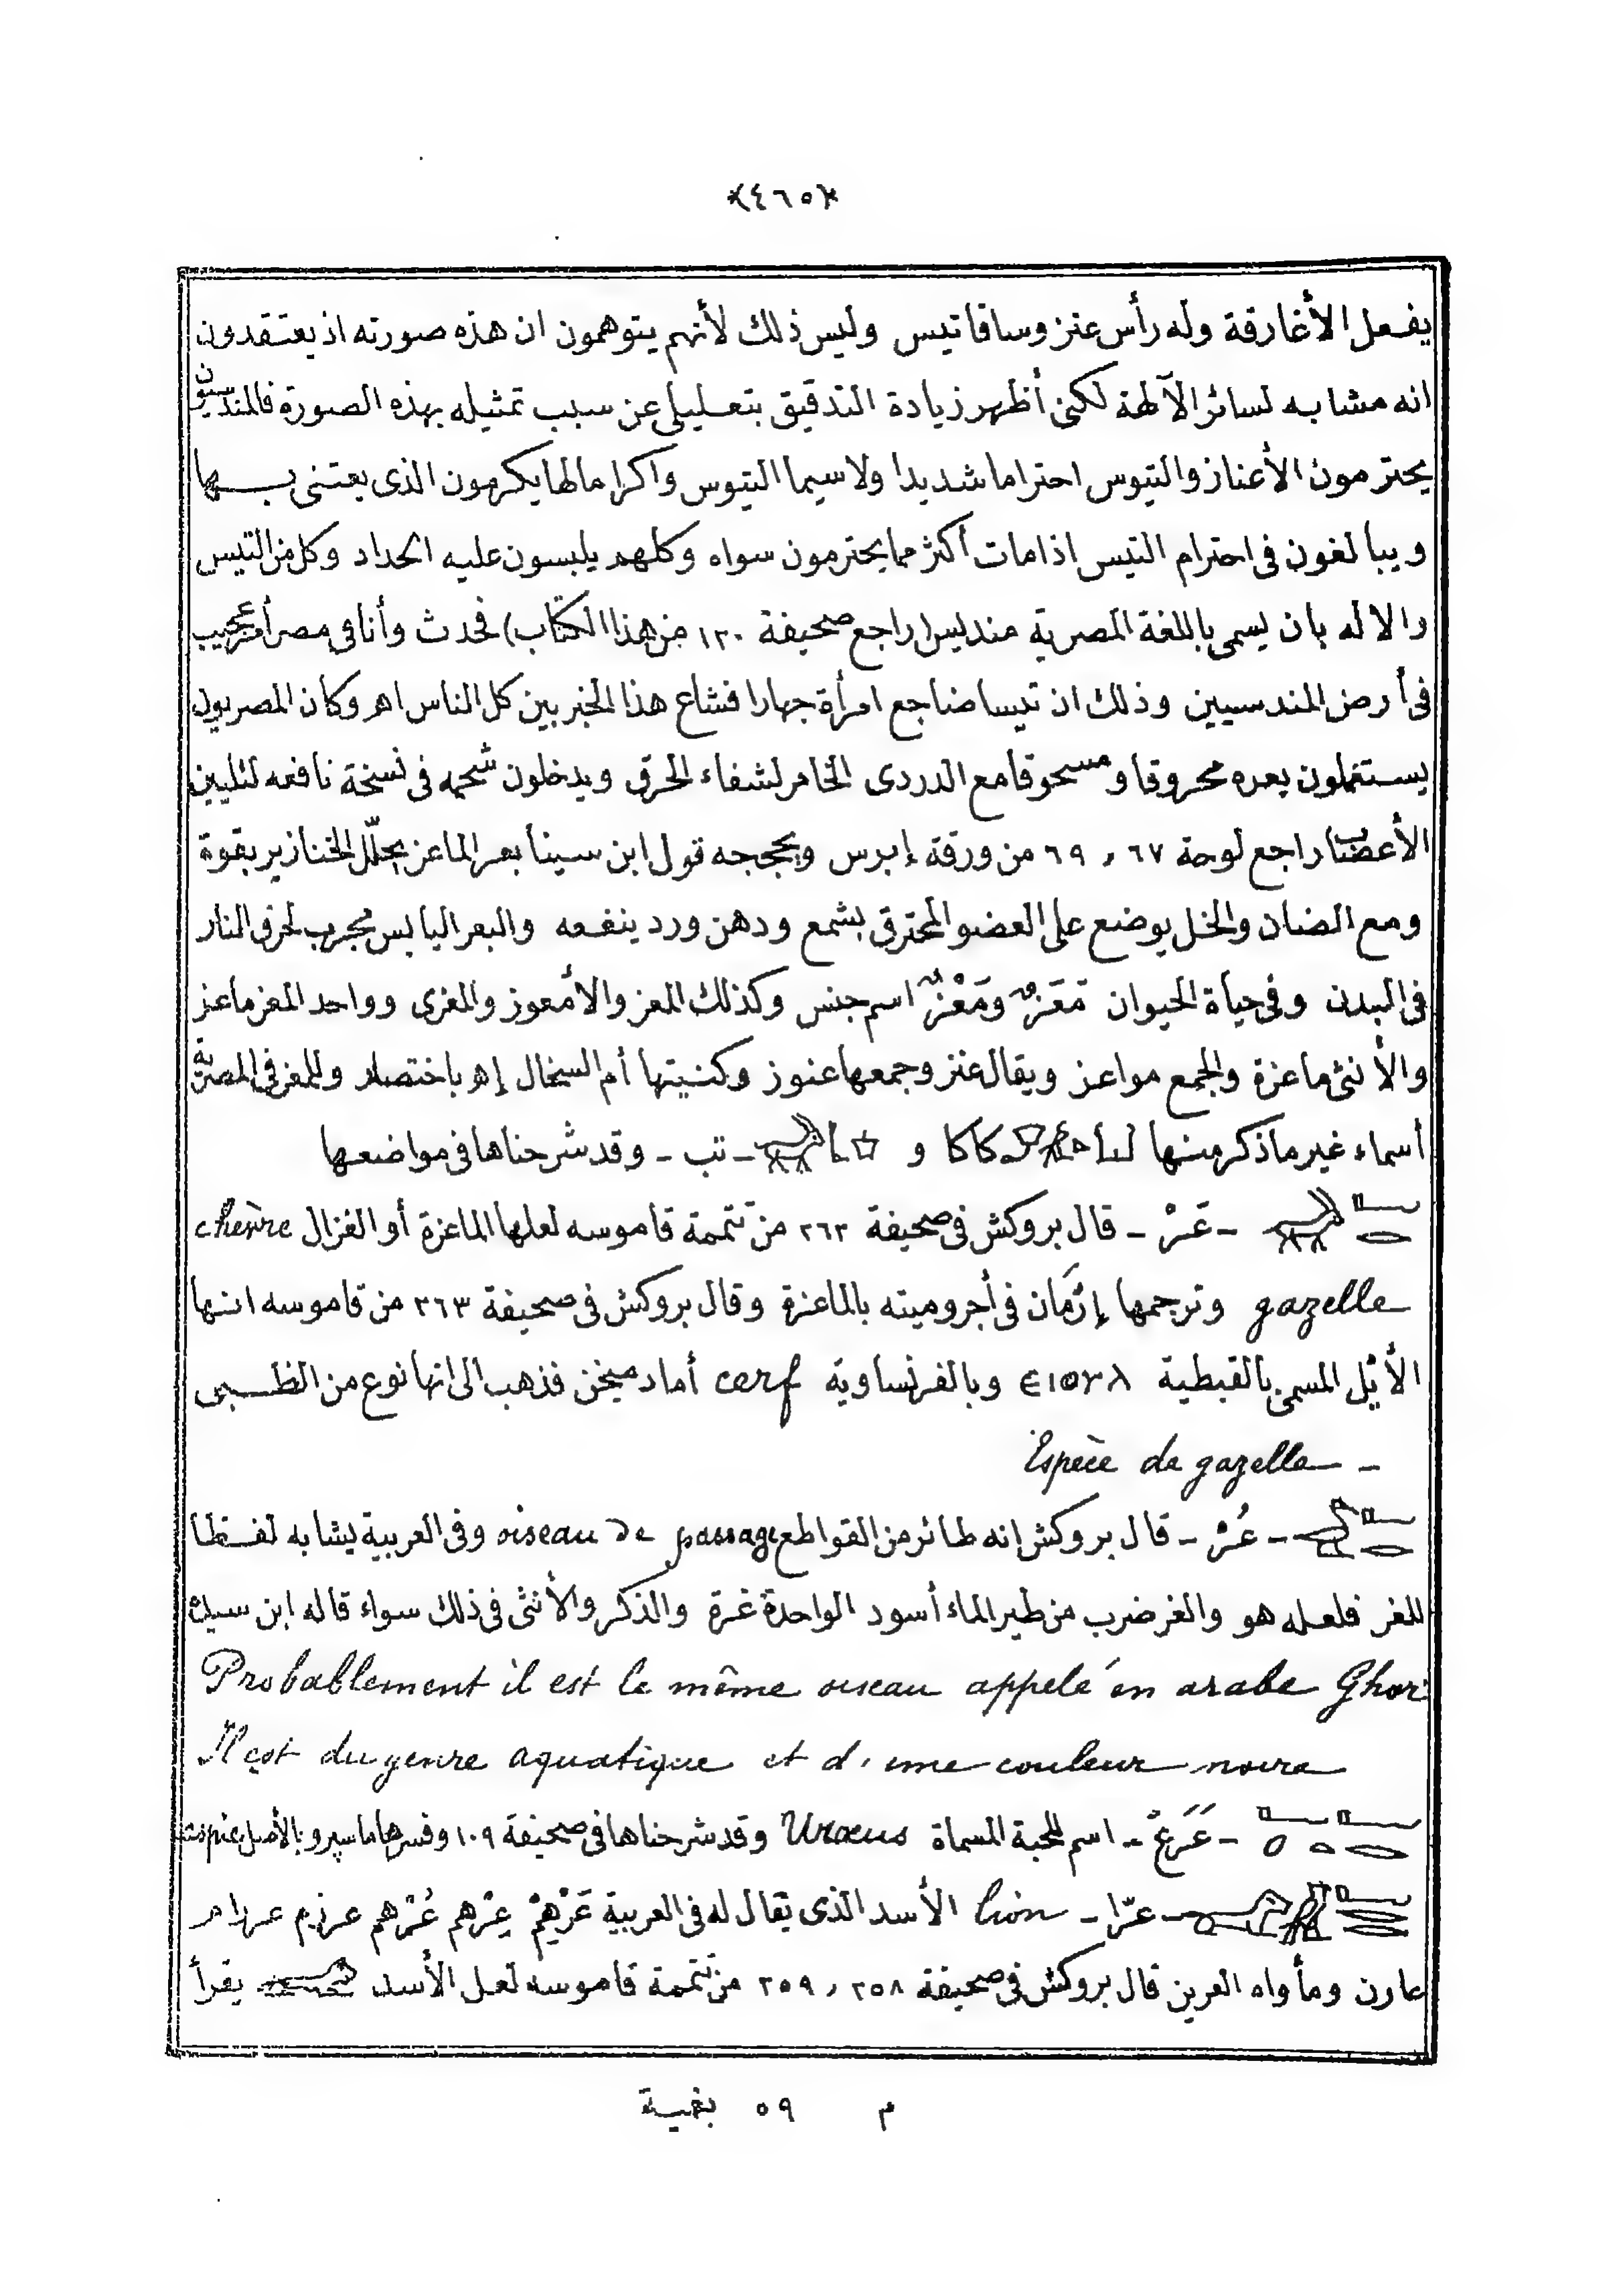 ﴿٤٦٥﴾
يفعل الأغارقة وله رأس عنز وساقا تيس وليس ذلك لأنهم يتوهمون ان هذه صورته اذ يعتقدون
انه مشابه لسائر الآلهة لكنى أظهر زيادة التدقيق بتعليلى عن سبب تمثيله بهذه الصورة فالمندسيون
يحترمون الأعناز والتيوس احتراما شديدا ولاسيما التيوس واكراما لها يكرمون الذى يعتنى بها
ويبالغون فى احترام التيس اذا مات أكثر مما يحترمون سواه وكلهم يلبسون عليه الحداد وكل من التيس
والاله بان يسمى باللغة المصرية منديس (راجع صحيفة ١٢٠ من هذا الكتاب) فحدث وأنا فى مصر أمر عجيب
فى أرض المندسيين وذلك ان تيسا ضاجع امرأة جهارا فشاع هذا الخبر بين كل الناس اهر وكان المصريون
يستعملون بعره محروقا ومسحوقا مع الدردى الخامر لشفاء الحرق ويدخلون شحمه فى نسخة نافعه لتليين
الأعصاب راجع لوحة ٦٧ , ٦٩ من ورقة إبرس ويحججه قول ابن سينا بعر الماعز يحلّل الخنازير بقوة
ومع الضان والخل يوضع على العضو المحترق بشمع ودهن ورد ينفعه والبعر اليابس مجرب لحرق النار
فى البدن وفى حياة الحيوان مَعَزٌ ومَعْزٌ اسم جنس وكذلك المعز والأمعوز والمعزى وواحد المعز ماعز
والأنثى ماعزة والجمع مواعز ويقال عنز وجمعها عنوز وكنيتها أم السخال إهر باختصار وللمعز فى المصرية
أسماء غير ما ذكر منها كاكا و ـ تب ـ وقد شرحناها فى مواضعها
ـ عَرْ ـ قال بروكش فى صحيفة ٢٦٢ من تتمة قاموسه لعلها الماعزة أو الغزال chèvre
gazelle وترجمها إرْمَان فى أجروميته بالماعزة وقال بروكش فى صحيفة ٢٦٣ من قاموسه انها
الأيّل المسمى بالقبطية ⲉⲓⲟⲩⲗ وبالفرنساوية cerf أما دميخن فذهب الى انها نوع من الظبى
Espèce de gazelle ـ
ـ عُرْ ـ قال بروكش إنه طائر من القواطع oiseau de passage وفى العربية يشابه لفظا
للغر فلعله هو والغر ضرب من طير الماء أسود الواحدة غرة والذكر والأنثى فى ذلك سواء قاله ابن سيده
Probablement il est le même oiseau appelé en arabe Ghor
Il est du genre aquatique et d'une couleur noire
ـ عَرَعْ ـ اسم للحية المسماة Uraeus وقد شرحناها فى صحيفة ١٠٩ وفسرها ماسبرو بالأصل aspic
ـ عرّا ـ lion الأسد الذى يقال له فى العربية عَرْهِمْ عِرْهم عُرْهم عرزم عرام
عارن ومأواه العرين قال بروكش فى صحيفة ٢٥٨ , ٢٥٩ من تتمة قاموسه لعل الأسد يقرأ
م ٥٩ بغية